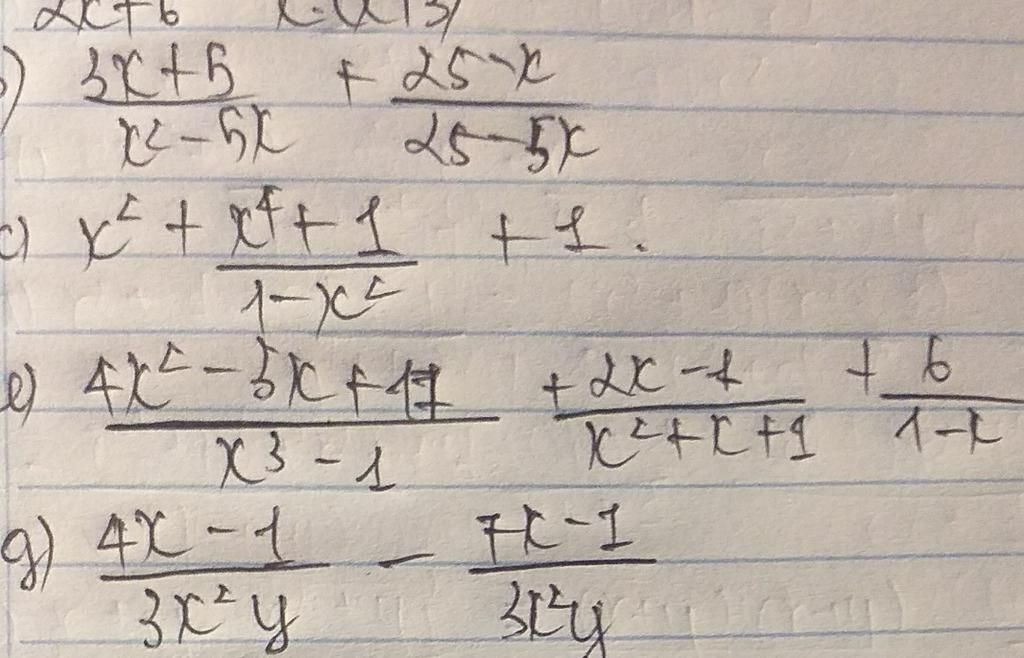 2x+6 x.(x+3)
b) (3x+5)/(x²-5x) + (25-x)/(25-5x)
c) x² + (x⁴+1)/(1-x²) + 1.
e) (4x²-3x+17)/(x³-1) + (2x-1)/(x²+x+1) + 6/(1-x)
g) (4x-1)/(3x²y) - (7x-1)/(3x²y)